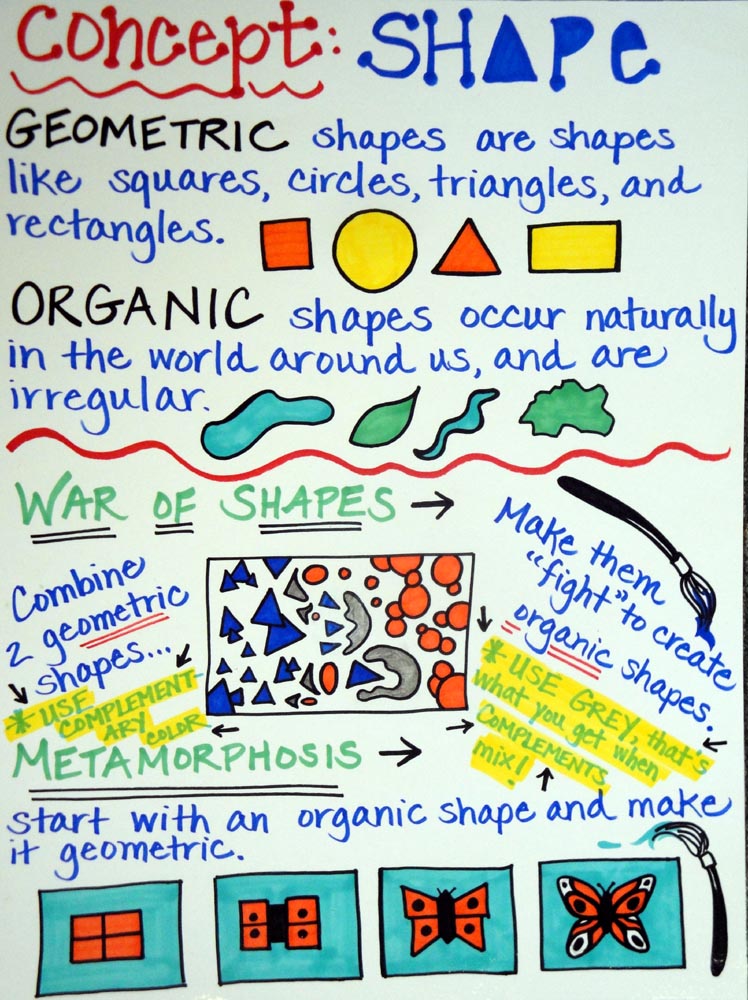 Concept: SHAPE
GEOMETRIC shapes are shapes
like squares, circles, triangles, and
rectangles.
ORGANIC shapes occur naturally
in the world around us, and are
irregular.
WAR OF SHAPES →
Combine
2 geometric
shapes...
* USE
COMPLEMENT-
ARY COLOR
Make them
"fight" to create
organic shapes.
* USE GREY, that's
what you get when
COMPLEMENTS
mix!
METAMORPHOSIS →
start with an organic shape and make
it geometric.